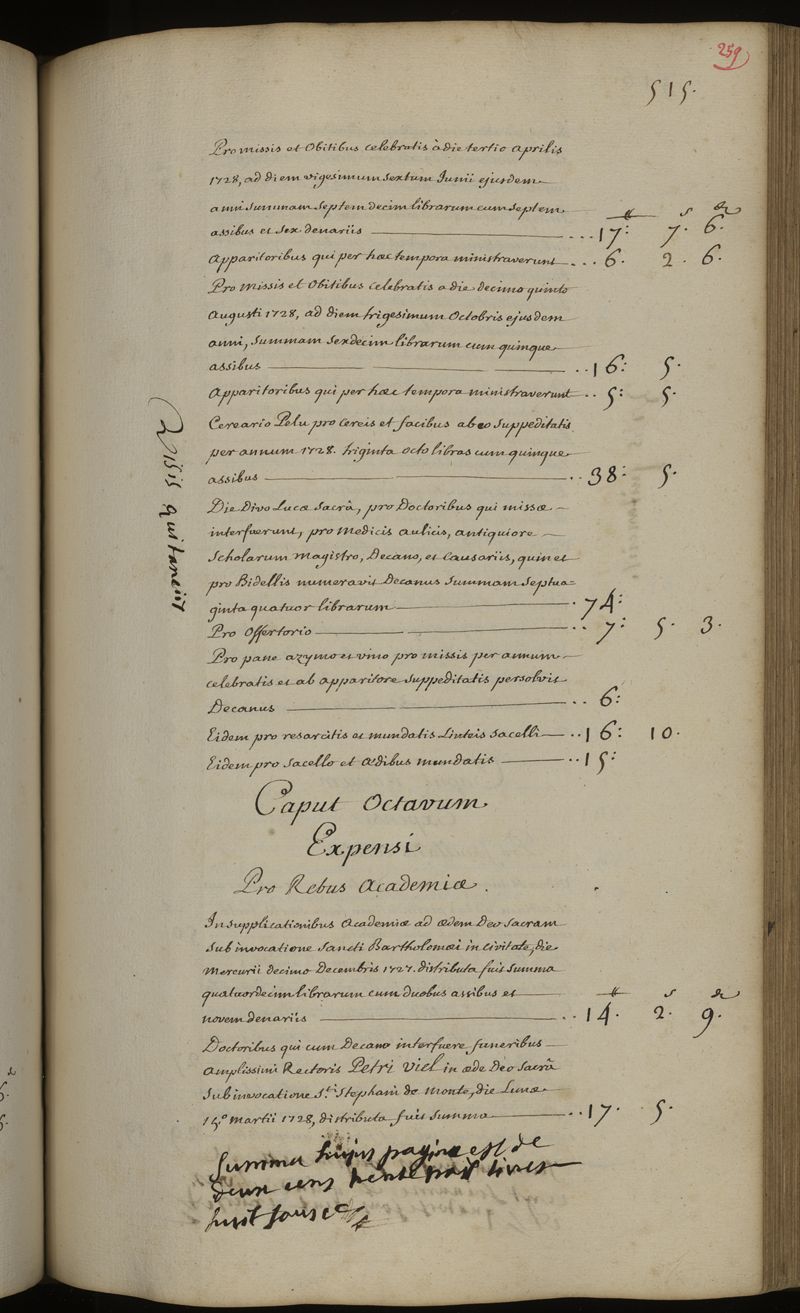 259
515.
Pro missis et Obitibus celebratis à die tertio aprilis
1728, ad diem vigesimum sextum Junii ejusdem
anni summam septem decim librarum cum septem
assibus et sex denariis 17: 7. 6.
apparitoribus qui per hæc tempora ministraverunt 6. 2. 6.
Pro missis et Obitibus celebratis a die decimo quinto
Augusti 1728, ad diem trigesimum Octobris ejusdem
anni, summam sexdecim librarum cum quinque
assibus 16: 5.
Apparitoribus qui per hæc tempora ministraverunt 5: 5.
Cereario Pelu pro Cereis et facibus ab eo suppeditatis
per annum 1728. triginta octo libras cum quinque
assibus 38: 5.
Visis quitanciis
Die Divo Lucæ Sacrâ, pro Doctoribus qui missæ
interfuerunt, pro Medicis aulicis, antiquiore
Scholarum Magistro, Decano, et Causariis, quin et
pro Bidellis numeravit Decanus summam septua=
ginta quatuor librarum 74:
Pro Offertorio 7: 5. 3.
Pro pane azymo et vino pro missis per annum
celebratis et ab apparitore suppeditatis persolvit
Decanus 6:
Eidem pro resarcitis et mundatis Linteis Sacelli 16: 10.
Eidem pro Sacello et ædibus mundatis 15:
Caput Octavum
Expensi
Pro Rebus Academiæ.
In supplicationibus Academiæ ad ædem Deo Sacram
Sub invocatione Sancti Bartholomæi in Civitate, die
Mercurii decimo Decembris 1727. distributa fuit summa
quatuordecim librarum cum duobus assibus et
novem denariis 14. 2. 9.
Doctoribus qui cum Decano interfuere funeribus
amplissimi Rectoris Petri Viel in æde Deo Sacrâ
Sub invocatione S.ti Stephani de Monte, die Lunæ
15.º Martii 1728, distributa fuit summa 17. 5.
Summa hujus paginæ est de
deux cens trente trois livres
huit sous